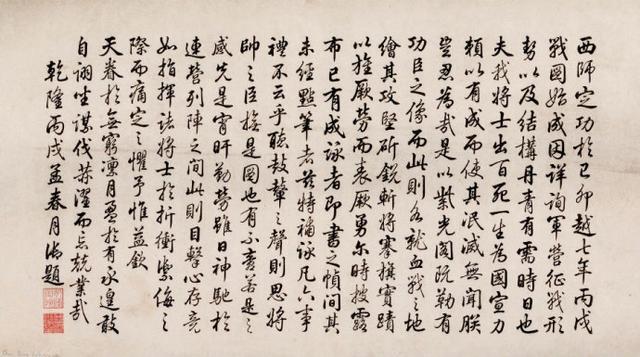 西師定功於己卯越七年丙戌
戰圖始成因詳詢軍營征戰形
勢以及結構丹青有需時日也
夫我將士出百死一生為國宣力
賴以有成而使其泯滅無聞朕
豈忍為哉是以紫光閣既勒有
功臣之像而此則各就血戰之地
繪其攻堅斫銳斬將搴旗實蹟
以旌厥勞而表厥勇爾時披露
布已有成詠者即書之幀間其
未經點筆者茲特補詠凡六事
禮不云乎聽鼓鼙之聲則思將
帥之臣撫是圖也有不啻若是之
感先是宵旰勤勞雖日神馳於
連營列陣之間此則目擊心存竞
如指揮諸將士於折衝禦侮之
際而痛定之懼予惟益欽
天眷於無窮凜月盈於有永遑敢
自詡坐謀伐葉濯而忘兢業哉
乾隆丙戌孟春月御題